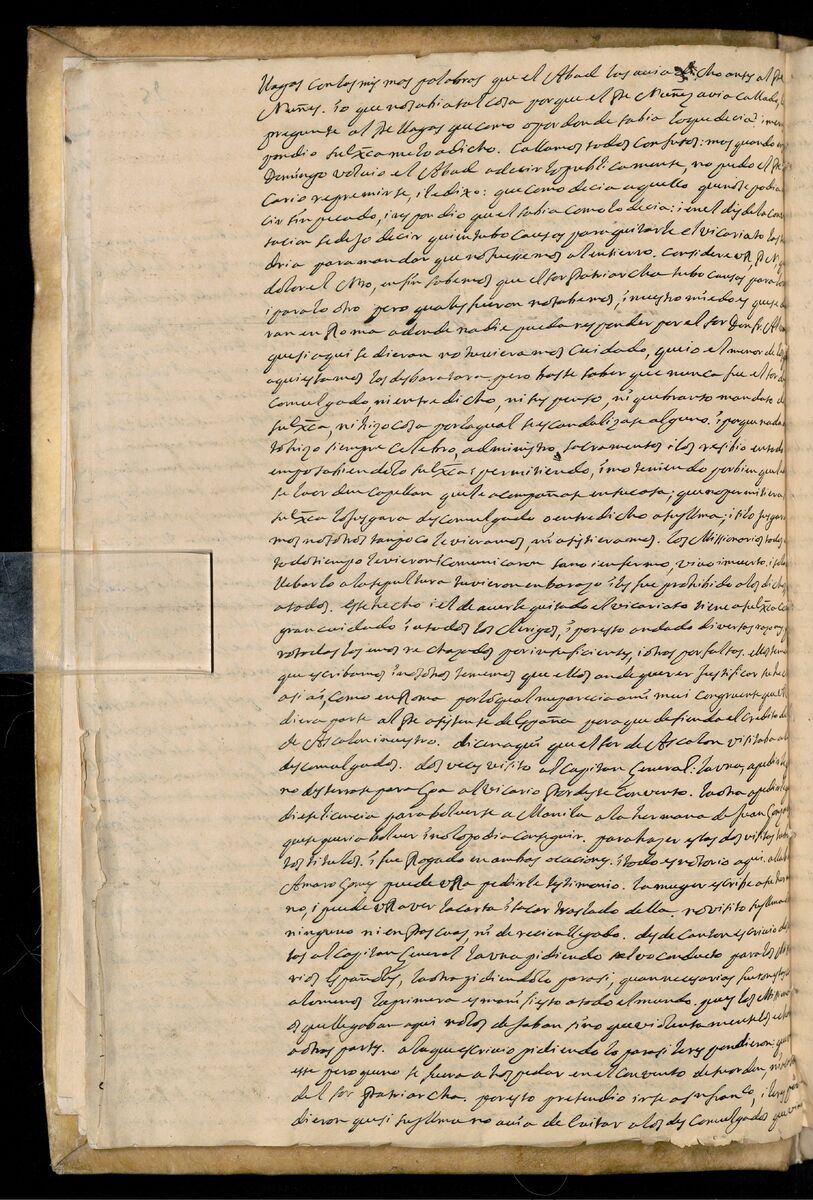 llagas con las mis mas palabras que el Abad las avia dicho antes al Pe
Nuñes. io que no sabia tal cosa porque el Pe Nuñes avia callado,
pregunte al Pe llagas que como o por donde sabia lo que decia? i me
pondio su Exca me lo a dicho. Callamos todos confusos: mas quando
Domingo volvio el Abad a decirlo publicamente, no pudo el
cario reprimirse, i le dixo: que como decia aquello que no se podia
cir sin pecado, i respondio que el sabia como lo decia: i en el dis de la
tacion se dejo decir quien tubo causas para quitarle el vicariato las
dria para mandar que no fuessemos al entierro. Considere VR,
dolor el nro, en fin sabemos que el sor Patriarcha tubo causas para
i para lo otro pero quales fueron no sabemos, i nuestro miedo es que se
ran en Roma adonde nadie pueda responder por el sor Don fr.
que si aqui se dieran no tuvieramos cuidado, que io el menor de los
aqui estamos las desbaratara. pero baste saber que nunca fue el sor
comulgado, ni entre dicho, ni suspenso, ni quebranto mandato
su Exca, ni hizo cosa por la qual se escandalisase alguno. i porque nada
to hizo siempre celebro, administro sacramentos i los resibio en todo
empo sabiendolo su Exca i permitiendo, i mo teniendo por bien que
se lser den capellan que le acompañase en su casa; que no permitiera
su Exca los jusgara descomulgado o entre dicho a su Yllma; i si lo jusgara
mos nosotros tampoco le vieramos, ni asistieramos. los Missionarios todos
todo tiempo le vieron i comunicaron sano i enfermo, vivo i muerto. i solo
llebarlo a la sepultura tuvieron enbarazo i les fue prohibido a los dichos
a todos. Este hecho i el de averle quitado el vicariato tiene a su Exca
gran cuidado i a todos los clerigos, i por esto an dado diversas razones
rotadas los unos re chazados por insuficientes, i otras por falsas. ellos temen
que escribamos i nosotros tememos que ellos ande querer justificar su
asi aqui como en Roma por lo qual me parecia a mi mui congruente que
diera parte al Pe asistente de España para que defienda el credito
de Ascalon i nuestro. dicen aqui que el sor de Ascalon visitaba a
descomulgados. dos veces visito al Capitan General: la una, a pedirle
no desterrase para Goa al vicario Prior deste convento. la otra a pedirle
diese licencia para bolverse a Manila a la hermana de Juan
que queria bolver i no lo podia conseguir. para hazer estas dos visitas
tos titulos. i fue rogado en ambas ocaciones. i todo es notorio aqui. a
Amaro Gomes puede VRa pedirle testimonio. la muger escribe a su
no, i puede VRa ver la carta i sacar traslado della. no visito su Yllma
ninguno ni en Pascuas, ni de recien llegado. desde Canton escrivio
tas al Capitan General la una pidiendo salvo conducto para los
rios Españoles, la otra pidiendolo para si, quan necesarias fueron
alomenos la primera es manifiesto a todo el mundo. pues los
os que llegaban aqui no los dejaban sino que violentamente los
a otras partes. a la que escrivio pidiendo lo para si le respondieron: que
este pero que no se fuera a hospedar en el convento de su orden, ni
del sor Patriarcha. por esto pretendio irse a sn franco, i le
dieron que si su Yllma no avia de tratar a los descomulgados que